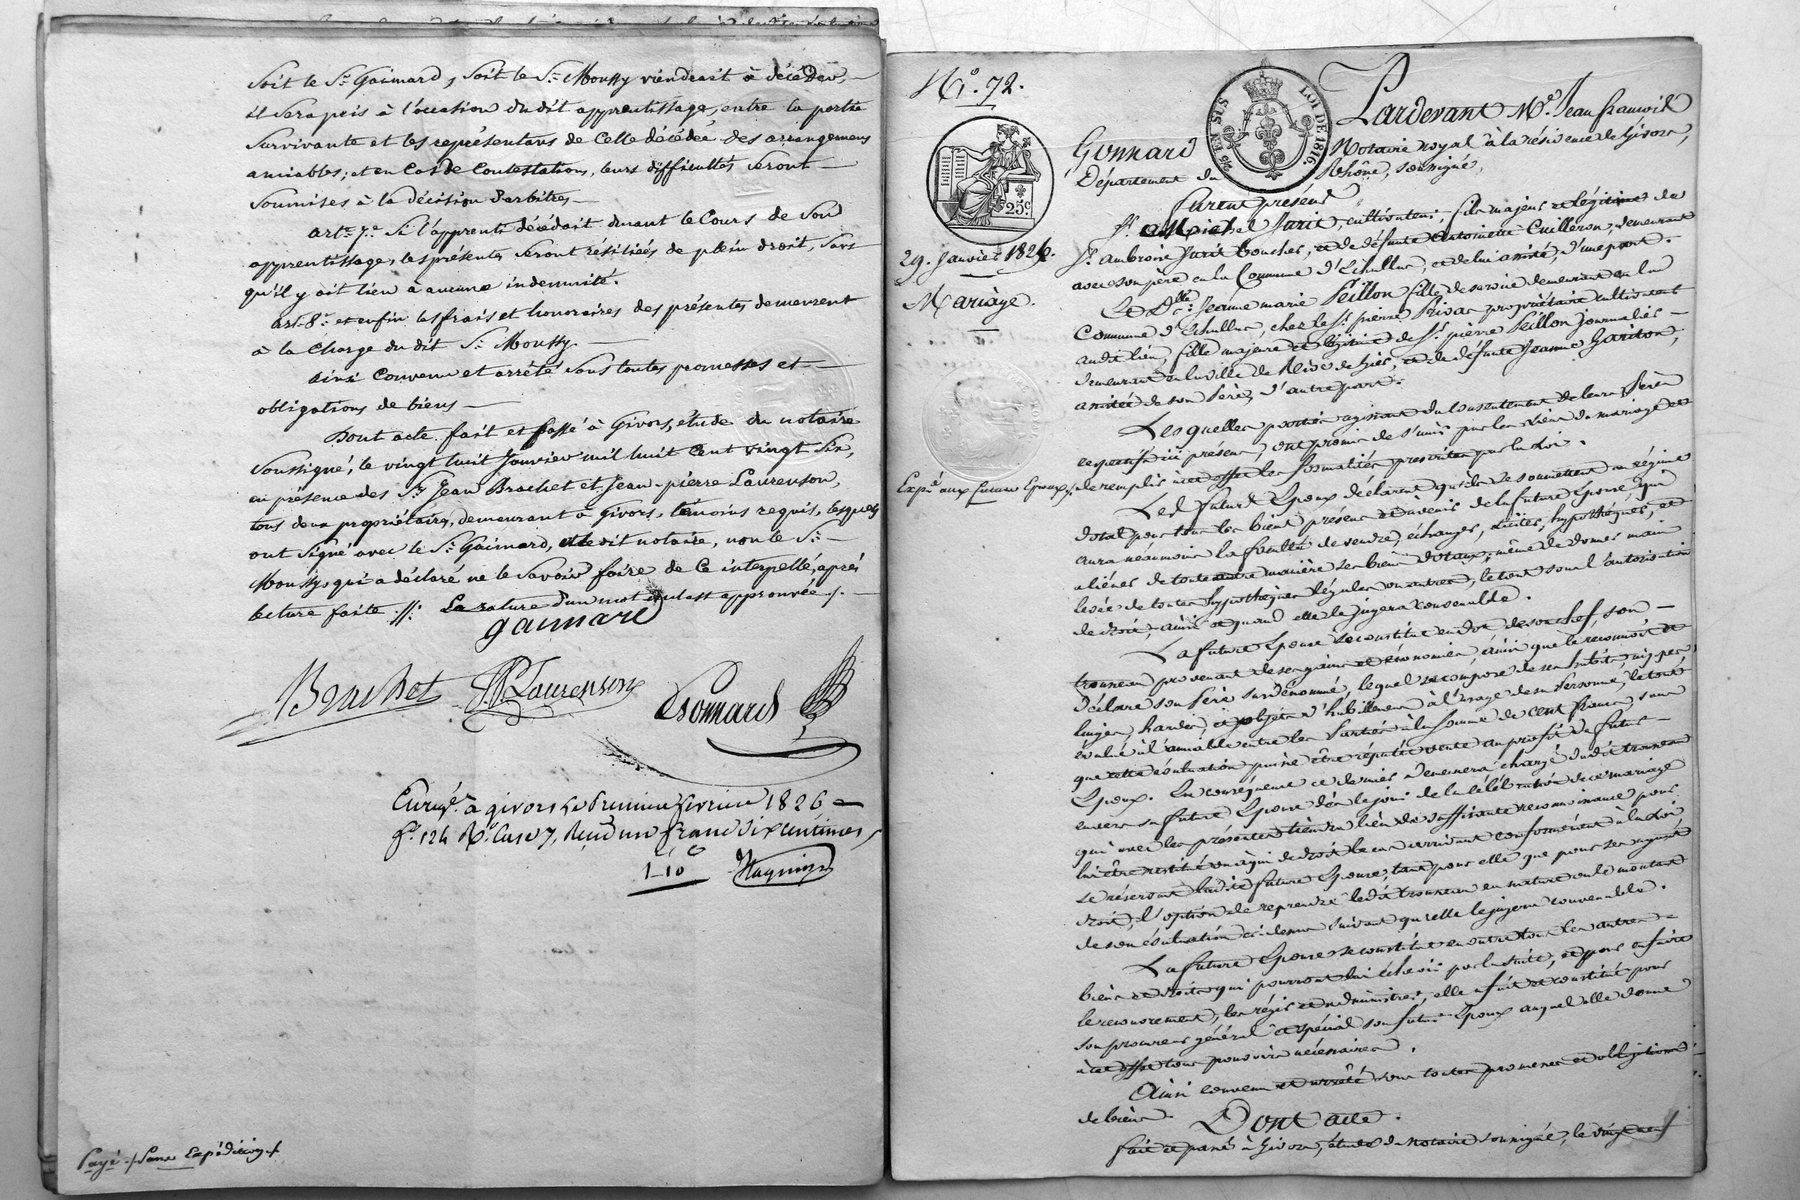 Soit le Sr. Gaimard, soit le Sr. Moussy viendrait à décéder,
il sera pris à l'occasion du dit apprentissage, entre la partie
Survivante et les représentans de Celle décédée des arrangemens
amiables; et en Cas de Contestations, leurs difficultés seront
Soumises à la décision d'arbitres
arte. 7e. Si l'apprenti décédait durant le Cours de Son
apprentissage, les présentes seront résiliées de plein droit, sans
qu'il y ait lieu à aucune indemnité.
art. 8e. et enfin les frais et honoraires des présentes demeurent
à la Charge du dit Sr. Moussy
Ainsi Convenu et arrêté sous toutes promesses et
obligations de biens
Dont acte. fait et passé à Givors, étude du notaire
Soussigné, le vingt huit Janvier mil huit Cent vingt Six,
en présence des Srs. Jean Brachet et Jean-pierre Laurenson,
tous deux propriétaires, demeurant à Givors, témoins requis, lesquels
ont Signé avec le Sr. Gaimard, et ledit notaire, non le Sr.
Moussy, qui a déclaré ne le Savoir faire de Ce interpellé, après
lecture faite. //. La rature d'un mot nul est approuvée ./.
gaimard
Brachet JP Laurenson Gonnard
Enregé. à givors le premier février 1826
fo. 124 Ro. Case 7, Reçu un franc dix centimes
1-10c
Payé ./. Sans Expédition ./.
No. 72.
25c
25 EN SUS LOI DE 1816.
29. Janvier 1826.
Mariage.
Expé. aux futurs Epoux
Pardevant Me. Jean francois
Gonnard Notaire royal à la résidence de Givors,
Département du Rhône, soussigné,
furent présens
Sr. Michel Jurie, cultivateur, fils majeur et légitime de
Sr. Ambroise Jurie boucher, et de défunte Antoinette Cuilleron, demeurant
avec son père en la Commune d'Echallas, et de lui assisté, d'une part.
Et Dlle. Jeanne marie Peillon fille de service demeurant en la
Commune d'Echallas, chez le Sr. pierre Privas propriétaire cultivateur
audit lieu, fille majeure et légitime de Sr. pierre Peillon journalier
demeurant en la ville de Rive de gier, et de défunte Jeanne Gariton,
assistée de son Père, d'autre part.
Lesquelles parties agissant du Consentement de leurs Pères
respectifs ici présens, ont promis de s'unir par les liens du mariage et
de remplir à cet effet les formalités prescrites par la loi.
Les futurs Epoux déclarent qu'ils se soumettent au régime
dotal pour tous les biens présens et avenir de la future Epouse, qui
aura néanmoins la faculté de vendre, échanger, liciter, hypothéquer, et
aliéner de toute autre manière ses biens dotaux, même de donner main
levée de toutes hypothèques légales ou autres, le tout sous l'autorisation
de droit, ainsi et quand elle le jugera convenable.
La future Epouse se constitue en dot de son chef, son
trousseau provenant de ses gains et économies, ainsi que le reconnoit et
déclare son Père susdénommé, lequel se compose de ses habits, nippes,
linges, hardes, et objets d'habillement à l'usage de sa Personne, le tout
évalué à l'amiable entre les Parties à la somme de cent francs, sans
que cette évaluation puisse être réputée vente au profit du futur
Epoux. En conséquence ce dernier demeurera chargé dudit trousseau
envers sa future Epouse dès le jour de la célébration de ce mariage
qui avec les présentes tiendra lieu de suffisante reconnaissance pour
lui être restitué ou à qui de droit le cas arrivant conformément à la loi,
se réservant ladite future Epouse, tant pour elle que pour ses ayant
droit, l'option de reprendre ledit trousseau en nature ou le montant
de son évaluation ci dessus suivant qu'elle le jugera convenable.
La future Epouse se constitue en outre tous les autres
biens et droits qui pourront lui échoir par la suite, et pour en faire
le recouvrement, les régir et administrer, elle a fait et constitué pour
son procureur général et spécial son futur Epoux auquel elle donne
à cet effet tous pouvoirs nécessaires.
Ainsi convenu et arrêté sous toutes promesses et obligations
de biens.
Dont acte.
fait et passé à Givors, étude du notaire soussigné, le vingt neuf